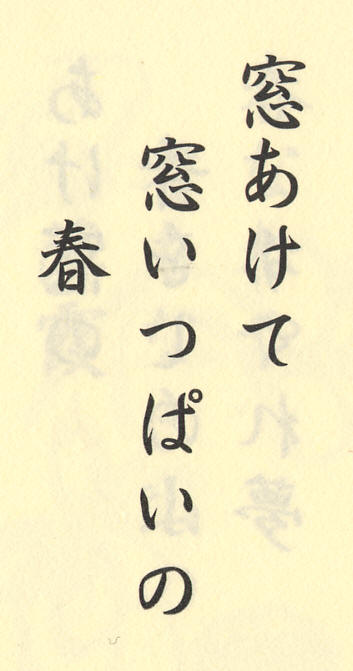 窓あけて
窓いつぱいの
春